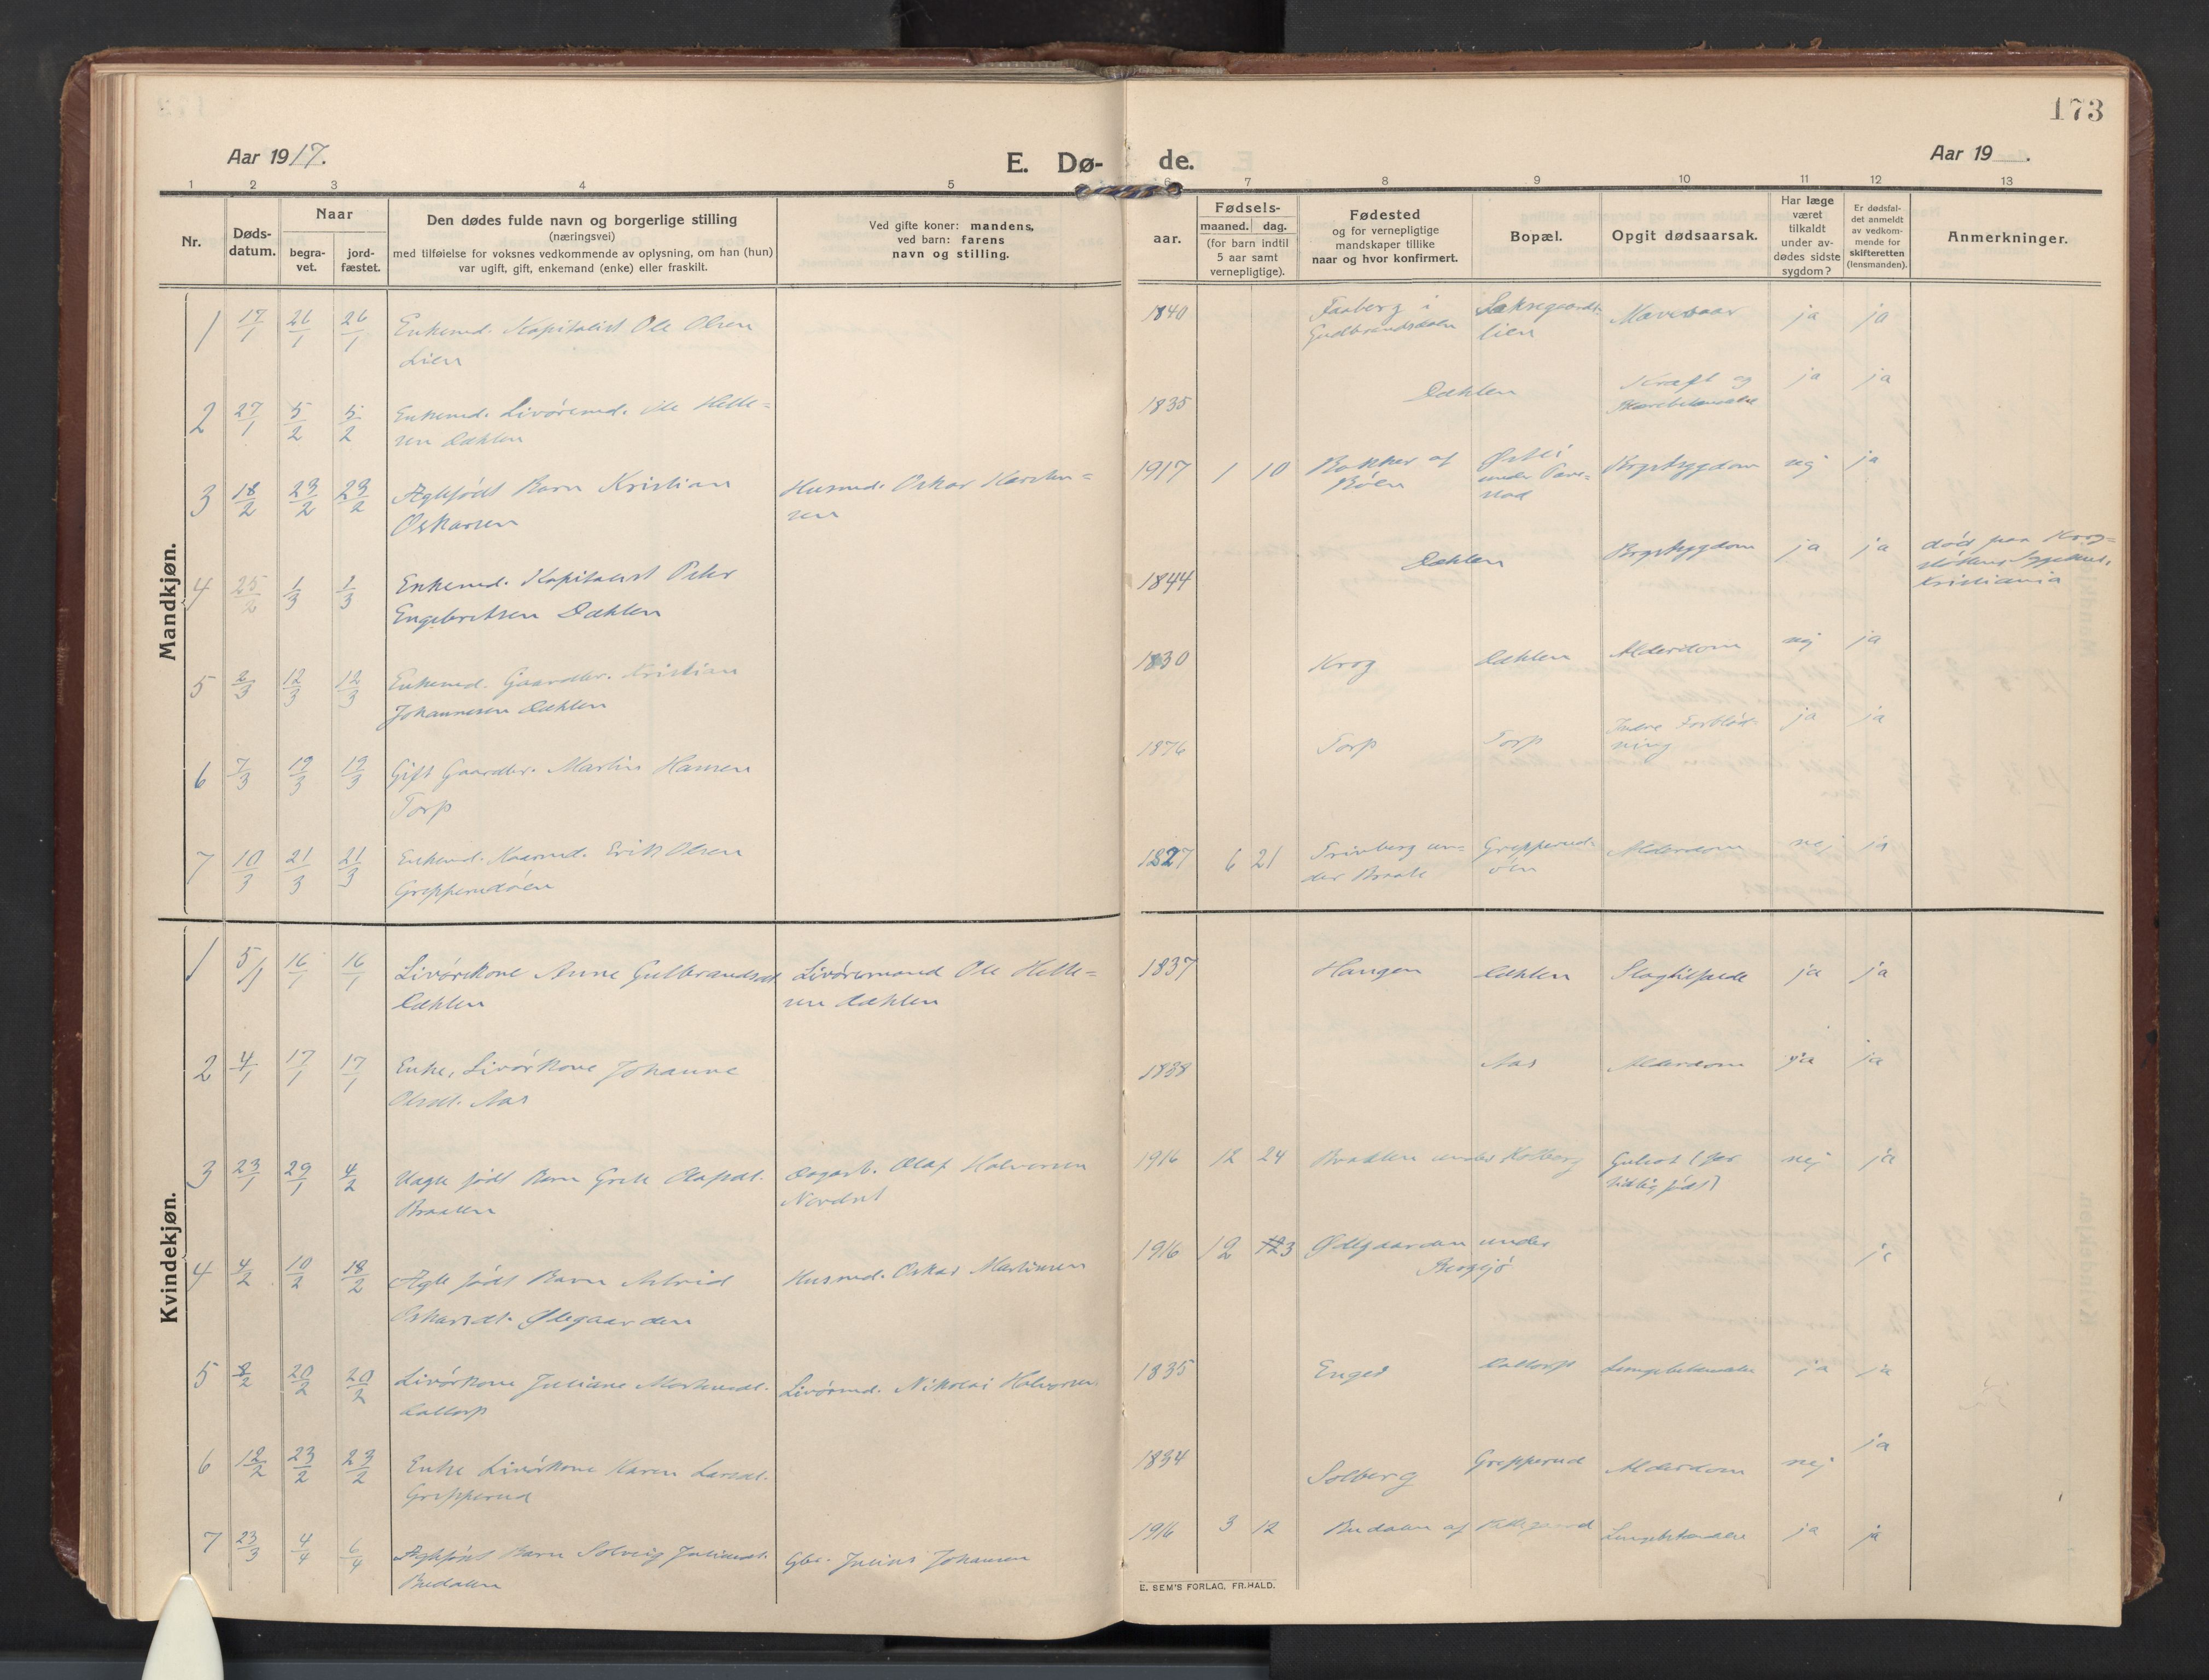 173
Aar 1917.
E. Dø- de.
Aar 19__.
1 2 3 4 5 6 7 8 9 10 11 12 13
Nr.
Døds-
datum.
Naar
begra-
vet.
jord-
fæstet.
Den dødes fulde navn og borgerlige stilling
(næringsvei)
med tilføielse for voksnes vedkommende av oplysning, om han (hun)
var ugift, gift, enkemand (enke) eller fraskilt.
Ved gifte koner: mandens,
ved barn: farens
navn og stilling.
Fødsels-
aar.
maaned. dag.
(for barn indtil
5 aar samt
vernepligtige).
Fødested
og for vernepligtige
mandskaper tillike
naar og hvor konfirmert.
Bopæl.
Opgit dødsaarsak.
Har læge
været
tilkaldt
under av-
dødes sidste
sygdom?
Er dødsfal-
det anmeldt
av vedkom-
mende for
skifteretten
(lensmanden).
Anmerkninger.
Mandkjøn.
1 17/1 26/1 26/1 Enkemd. Kapitalist Ole Olsen 1840 Faaberg i ja ja
Lien Gudbrandsdalen lien
2 27/1 5/2 5/2 Enkemd. Livøremd. Ole Helle= 1835 Dæhlen Kræft og ja ja
sen Dæhlen
3 18/2 23/2 23/2 Ægtefødt Barn Kristian Husmd. Oskar Karsten= 1917 1 10 Bakker af Brystsygdom nej ja
Oskarsen sen under
4 25/2 1/3 1/3 Enkemd. Kapitalist Peter 1844 Dæhlen Brystsygdom ja ja død paa Krog=
Engebretsen Dæhlen støtten Sygehus,
Kristiania
5 2/3 12/3 12/3 Enkemd. Gaardbr. Kristian 1830 Krog Dæhlen Alderdom nej ja
Johannesen Dæhlen
6 7/3 19/3 19/3 Gift Gaardbr. Martin Hansen 1876 Torp Torp Indre Forblød- ja ja
Torp ning
7 10/3 21/3 21/3 Enkemd. Kaarmd. Erik Olsen 1827 6 21 un- Grepperud- Alderdom nej ja
Grepperudøen der Braate øen
Kvindekjøn.
1 5/1 16/1 16/1 Livørekone Anne Gulbrandsdt. Livøremand Ole Helle= 1837 Haugen Dæhlen Slagtilfælde ja ja
Dæhlen sen Dæhlen
2 4/1 17/1 17/1 Enke, Livørkone Johanne 1838 Aas Alderdom ja ja
Olsdt. Aas
3 23/1 29/1 4/2 Uægte født Barn Grete Olafsdt. Dagarb. Olaf Halvorsen 1916 12 24 Braaten under Kolberg Gulsot (for nej ja
Braaten Nordset tidlig født)
4 4/2 10/2 18/2 Ægte født Barn Astrid Husmd. Oskar Martinsen 1916 12 Ødegaarden under ja
Oskarsdt. Ødegaarden Bergsjø
5 8/2 20/2 20/2 Livørkone Juliane Mortensdt. Livørmd. Nikolai Halvorsen 1835 Enger Lungebetændelse ja ja
6 12/2 23/2 23/2 Enke Livørkone Karen Larsdt. 1834 Solberg Grepperud Alderdom nej ja
Grepperud
7 23/3 4/4 6/4 Ægtefødt Barn Solveig Juliusdt. Gbr. Julius Johansen 1916 3 12 Budalen af Lungebetændelse ja ja
Budalen
E. SEM'S FORLAG, FR.HALD.